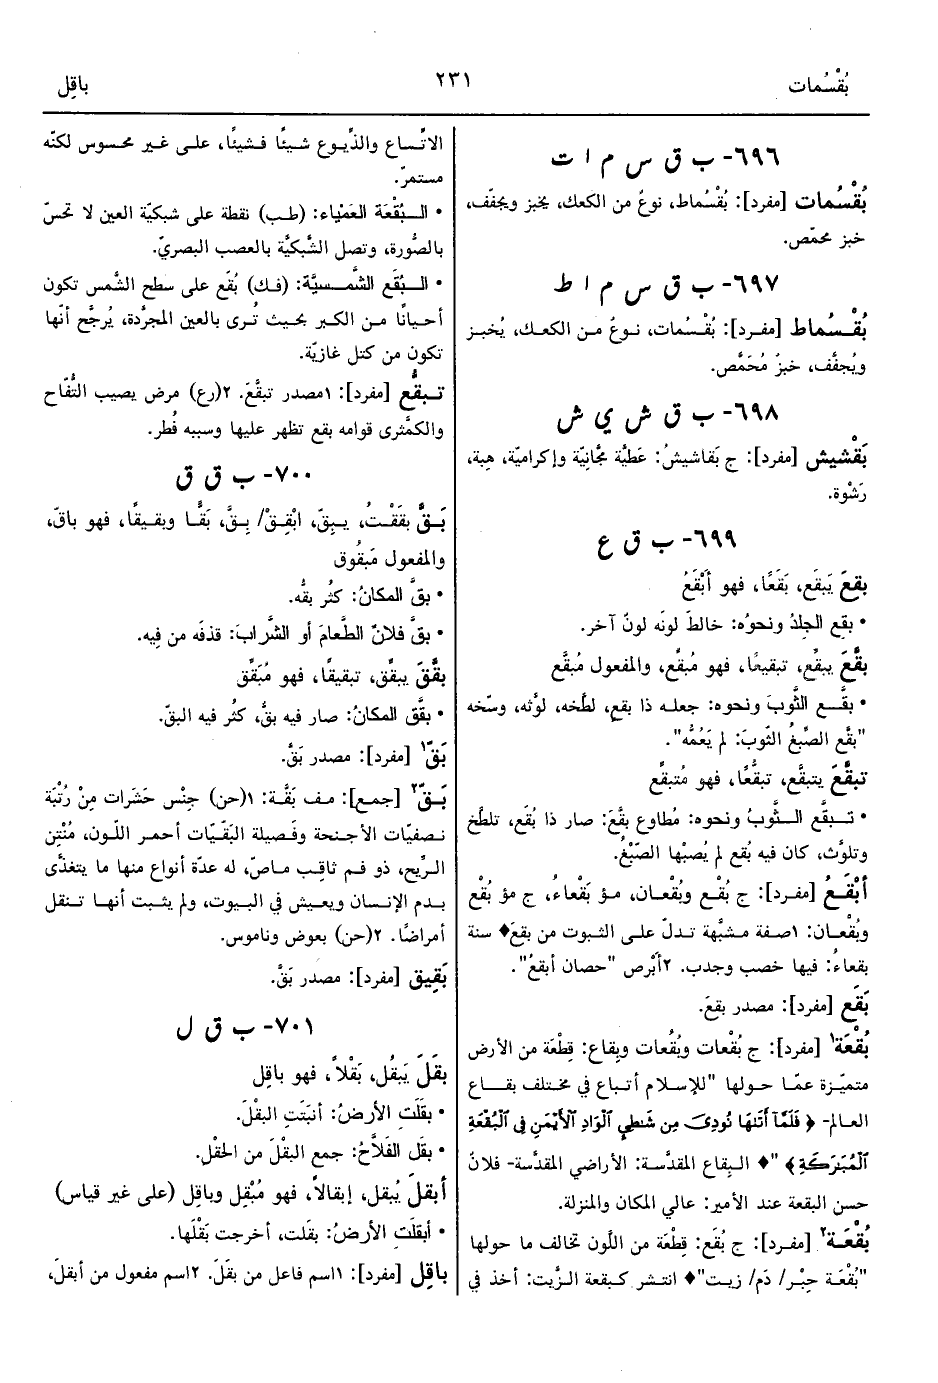 بُقْسُمات
٢٣١
باقِل
٦٩٦- ب ق س م ا ت
بُقْسُمات [مفرد]: بُقْسُماط، نوعٌ من الكعك، يخبز ويجفّف،
خبز محمّص.
٦٩٧- ب ق س م ا ط
بُقْسُماط [مفرد]: بُقْسُمات، نوعٌ من الكعك، يُخبز
ويُجفَّف، خبزٌ مُحَمَّص.
٦٩٨- ب ق ش ي ش
بَقْشيش [مفرد]: ج بَقاشيشُ: عَطيَّة مجَّانيّة وإكراميّة، هِبة،
رَشْوة.
٦٩٩- ب ق ع
بقِعَ يَبقَع، بَقَعًا، فهو أَبْقَعُ
• بقِع الجلدُ ونحوُه: خالطَ لونَه لونٌ آخر.
بقَّعَ يبقِّع، تبقيعًا، فهو مُبقِّع، والمفعول مُبقَّع
• بقَّع الثَّوبَ ونحوه: جعله ذا بقع، لطَّخه، لوَّثه، وسَّخه
"بقَّع الصِّبغُ الثّوبَ: لم يَعُمَّه".
تبقَّعَ يتبقَّع، تبقُّعًا، فهو مُتبقِّع
• تبقَّع الثَّوبُ ونحوه: مُطاوع بقَّعَ: صار ذا بُقَع، تلطَّخ
وتلوَّث، كان فيه بُقع لم يُصبْها الصِّبْغُ.
أَبْقَعُ [مفرد]: ج بُقْع وبُقْعان، مؤ بَقْعاءُ، ج مؤ بُقْع
وبُقْعان: ١صفة مشبَّهة تدلّ على الثبوت من بقِعَ♦ سنة
بقعاءُ: فيها خصب وجدب. ٢أبْرص "حصان أبقعُ".
بَقَع [مفرد]: مصدر بقِعَ.
بُقْعَة١ [مفرد]: ج بُقْعات وبُقُعات وبِقاع: قِطْعَة من الأرض
متميّزة عمّا حولها "للإسلام أتباع في مختلف بقاع
العالم- ﴿ فَلَمَّآ أَتَىٰهَا نُودِىَ مِن شَٰطِىِٕ ٱلْوَادِ ٱلْأَيْمَنِ فِى ٱلْبُقْعَةِ
ٱلْمُبَٰرَكَةِ﴾ "♦ البِقاع المقدَّسة: الأراضي المقدَّسة- فلانٌ
حسن البقعة عند الأمير: عالي المكان والمنزلة.
بُقْعَة٢ [مفرد]: ج بُقَع: قِطْعة من اللَّون تخالف ما حولها
"بُقْعَة حِبْر/ دَم/ زيت"♦ انتشر كبقعة الزَّيت: أخذ في
الاتِّساع والذُّيوع شيئًا فشيئًا، على غير محسوس لكنّه
مستمرّ.
• البُقْعَة العَمْياء: (طب) نقطة على شبكيّة العين لا تحسّ
بالصُّورة، وتصل الشَّبكيَّة بالعصب البصريّ.
• البُقَع الشَّمسيَّة: (فك) بُقَع على سطح الشَّمس تكون
أحيانًا من الكبر بحيث تُرى بالعين المجرَّدة، يُرجَّح أنّها
تكون من كتل غازيّة.
تبقُّع [مفرد]: ١مصدر تبقَّعَ. ٢(رع) مرض يصيب التُّفّاح
والكمَّثرى قوامه بقع تظهر عليها وسببه فُطر.
٧٠٠- ب ق ق
بَقَّ بقَقْتُ، يبِقّ، ابْقِقْ/ بِقَّ، بَقًّا وبقيقًا، فهو باقّ،
والمفعول مَبقُوق
• بقَّ المكانُ: كثُر بقُّه.
• بقَّ فلانٌ الطَّعامَ أو الشَّرابَ: قذفَه من فِيه.
بقَّقَ يبقِّق، تبقيقًا، فهو مُبَقِّق
• بقَّق المكانُ: صار فيه بقٌّ، كثُر فيه البقّ.
بَقّ١ [مفرد]: مصدر بَقَّ.
بَقّ٢ [جمع]: مف بَقَّة: ١(حن) جِنْس حَشَرات مِنْ رُتْبَة
نصفيّات الأجنحة وفَصيلة البَقّيّات أحمر اللّون، مُنْتِن
الرِّيح، ذو فم ثاقِب ماصّ، له عدّة أنواع منها ما يتغذَّى
بدم الإنسان ويعيش في البيوت، ولم يثبت أنها تنقل
أمراضًا. ٢(حن) بعوض وناموس.
بَقِيق [مفرد]: مصدر بَقَّ.
٧٠١- ب ق ل
بقَلَ يَبقُل، بَقْلاً، فهو باقِل
• بقَلَتِ الأرضُ: أنبَتَتِ البقْلَ.
• بقَل الفَلاَّحُ: جمع البقْلَ من الحقْل.
أبقلَ يُبقل، إبقالاً، فهو مُبْقِل وباقِل (على غير قياس)
• أبقلَتِ الأرضُ: بقَلت، أخرجت بَقْلَها.
باقِل [مفرد]: ١اسم فاعل من بقَلَ. ٢اسم مفعول من أبقلَ،